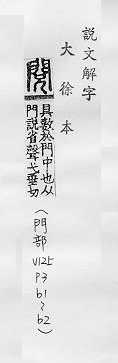 説文解字
大徐本
閱
具數於門中也从
門說省聲弋雪切
(門部
V125
P3
b1~
b2)